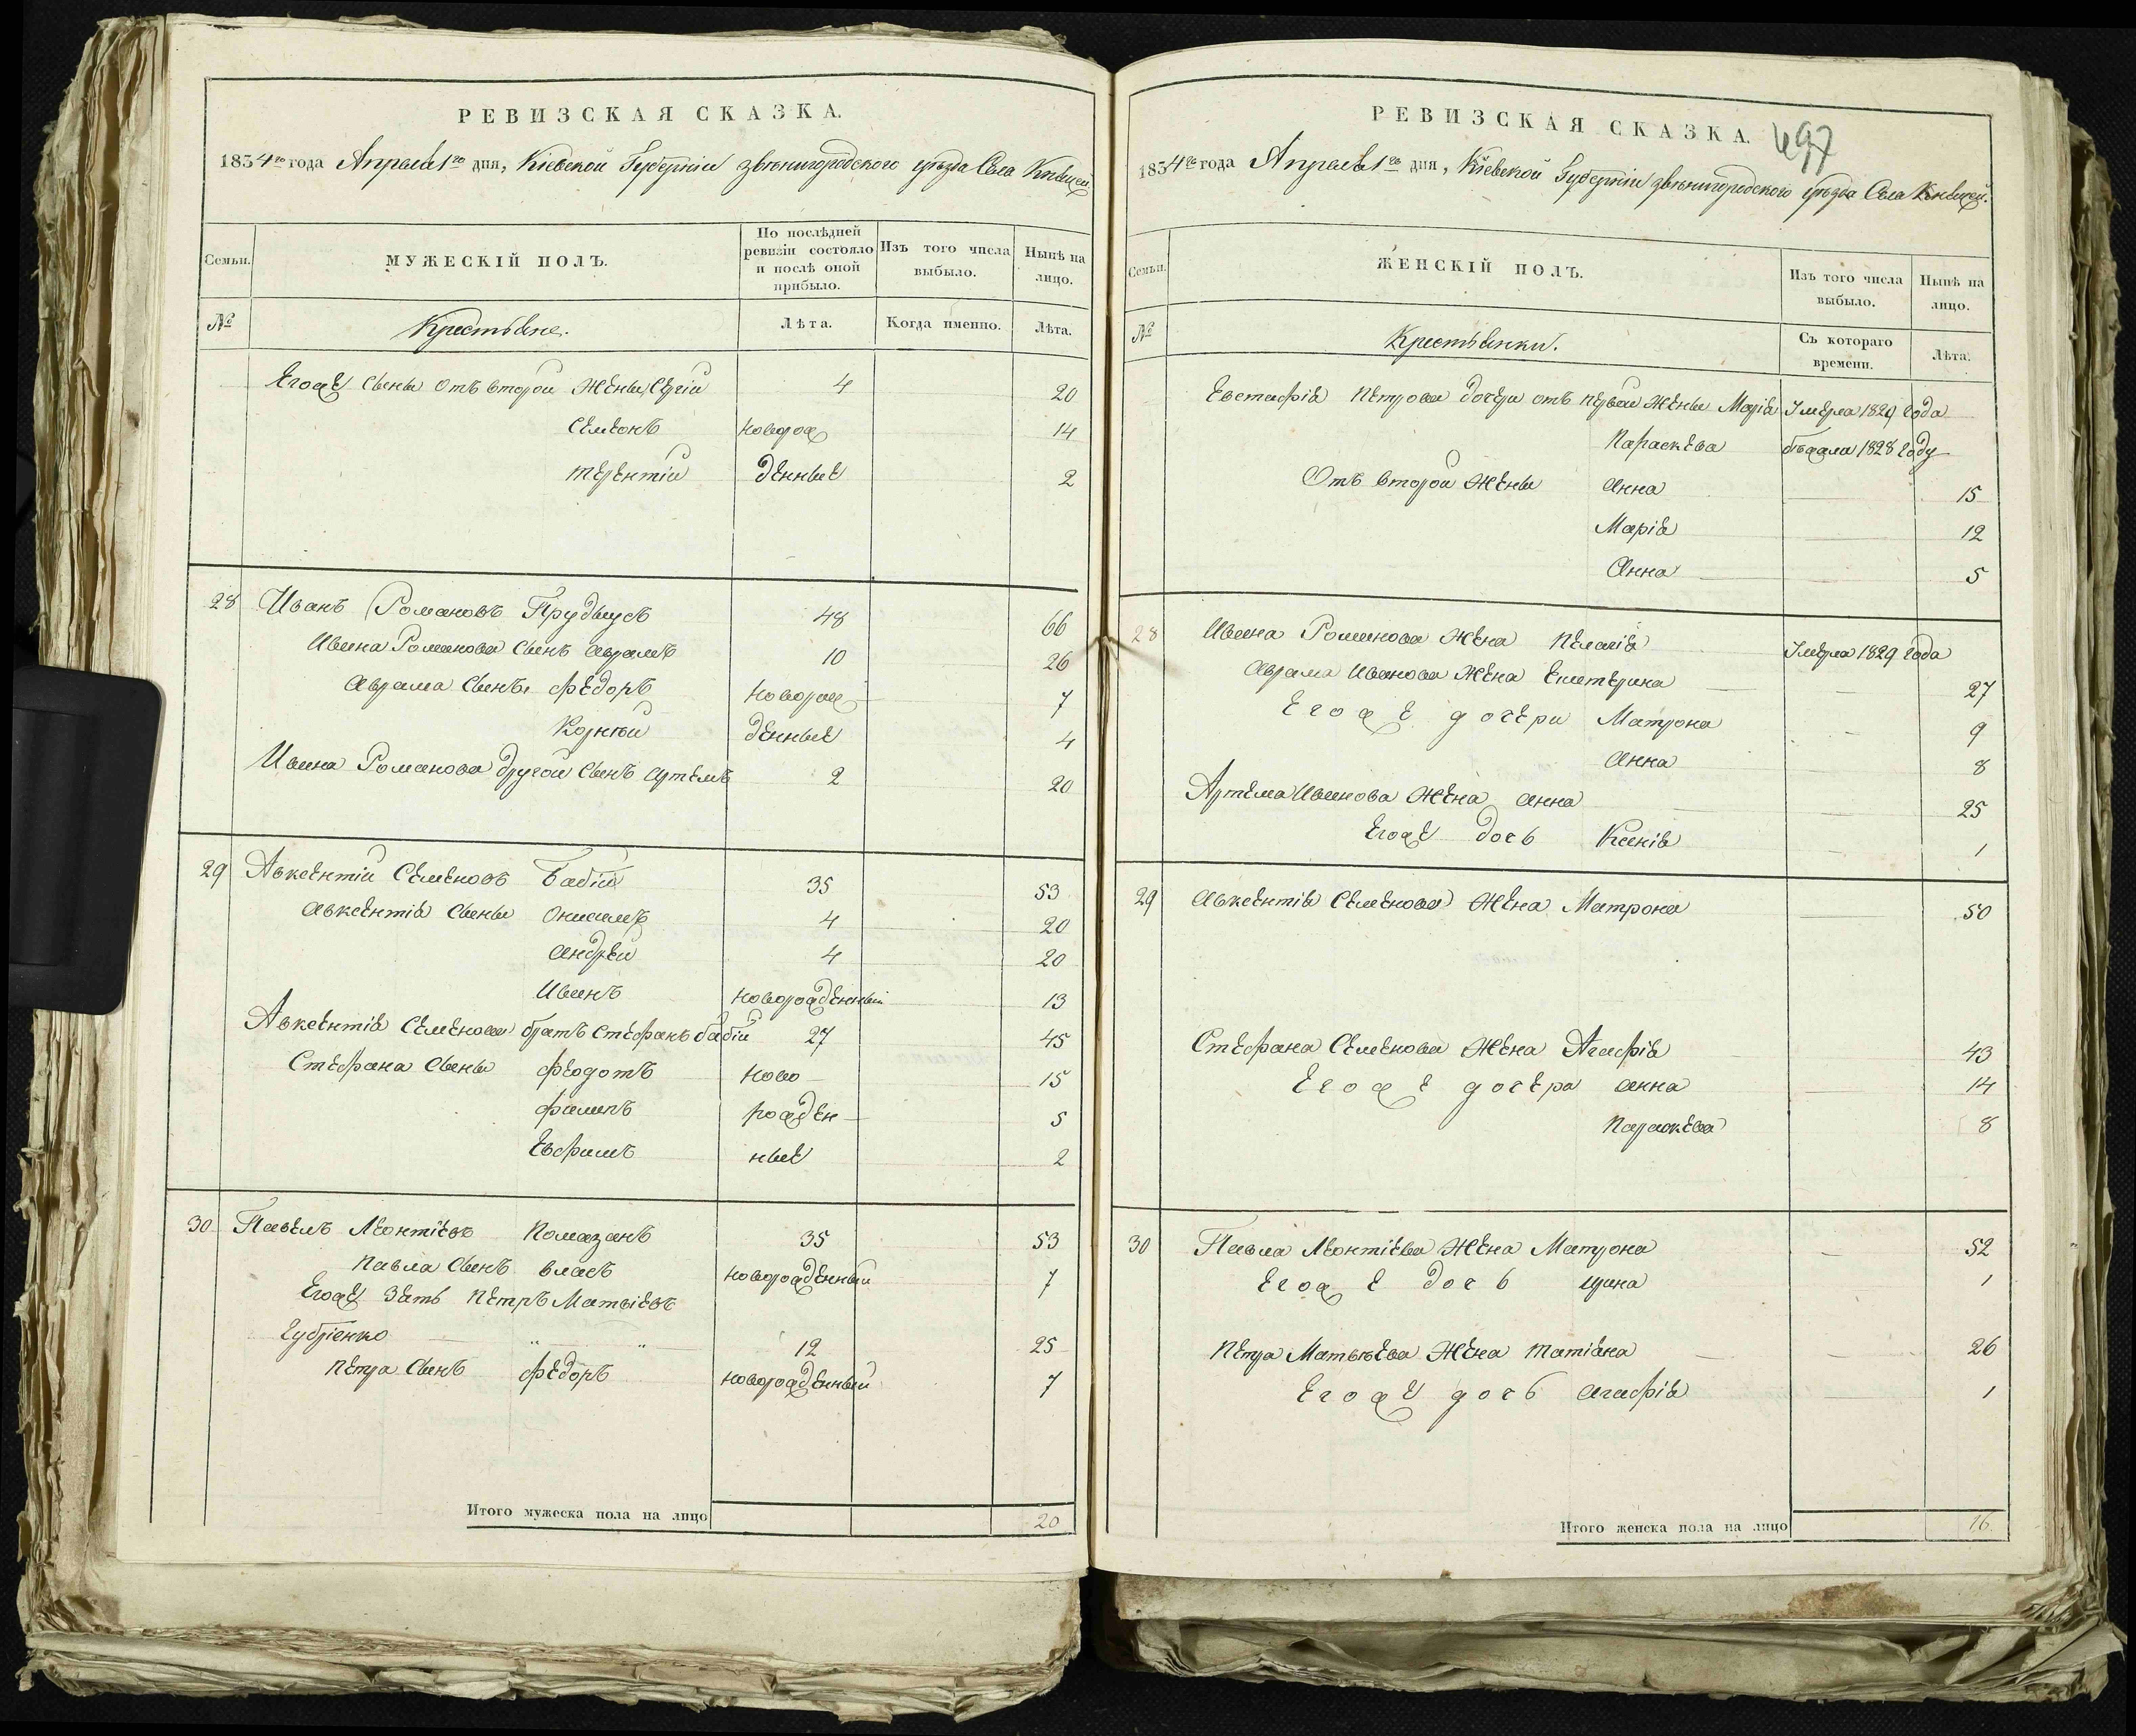 РЕВИЗСКАЯ СКАЗКА.
1834го года Апреля 1го дня, Кіевской Губерніи Звѣнигородского уѣзда Села
Семьи.
МУЖЕСКІЙ ПОЛЪ.
По послѣдней ревизіи состояло и послѣ оной прибыло.
Изъ того числа выбыло.
Нынѣ на лицо.
№
Крестьяне.
Лѣта.
Когда именно.
Лѣта.
Егожъ сыны отъ второй жены Сергій 4 20
Семенъ новорож 14
Терентій денные 2
28 Иванъ Романовъ 48 66
Ивана Романова сынъ Аврамъ 10 26
Аврама сыны Федоръ новорож 7
Корнѣй денные 4
Ивана Романова другой сынъ Артемъ 2 20
29 Авксентій Семеновъ Бабій 35 53
Авксентія сыны Онисимъ 4 20
Андрей 4 20
Иванъ новорожденный 13
Авксентія Семенова братъ Стефанъ Бабій 27 45
Стефана сыны Федотъ ново 15
Филипъ рожден 5
Евфимъ ные 2
30 Павелъ Леонтіевъ Помазанъ 35 53
Павла сынъ Власъ новорожденный 7
Егоже зять Петръ Матвіевъ
Губріенко " " 12 25
Петра сынъ Федоръ новорожденный 7
Итого мужеска пола на лицо 20
РЕВИЗСКАЯ СКАЗКА.
497
1834го года Апреля 1го дня, Кіевской Губерніи Звѣнигородского уѣзда Села
Семьи.
ЖЕНСКІЙ ПОЛЪ.
Изъ того числа выбыло.
Нынѣ на лицо.
№
Крестьянки.
Съ котораго времени.
Лѣта.
Евстафія Петрова дочери отъ первой жены Марія Умерла 1829 года
Параскева бѣжала 1828 году
Отъ второй жены Анна 15
Марія 12
Анна 5
28 Ивана Романова жена Пелагія Умерла 1829 года
Аврама Иванова жена Екатерина 27
Егоже дочери Матрона 9
Анна 8
Артема Иванова жена Анна 25
Егоже дочь Ксенія 1
29 Авксентія Семенова жена Матрона 50
Стефана Семенова жена Агафія 43
Егоже дочера Анна 14
Параскева 8
30 Павла Леонтіева жена Матрона 52
Егоже дочь Ирина 1
Петра Матвѣева жена Татіяна 26
Егоже дочь Агафія 1
Итого женска пола на лицо 16.